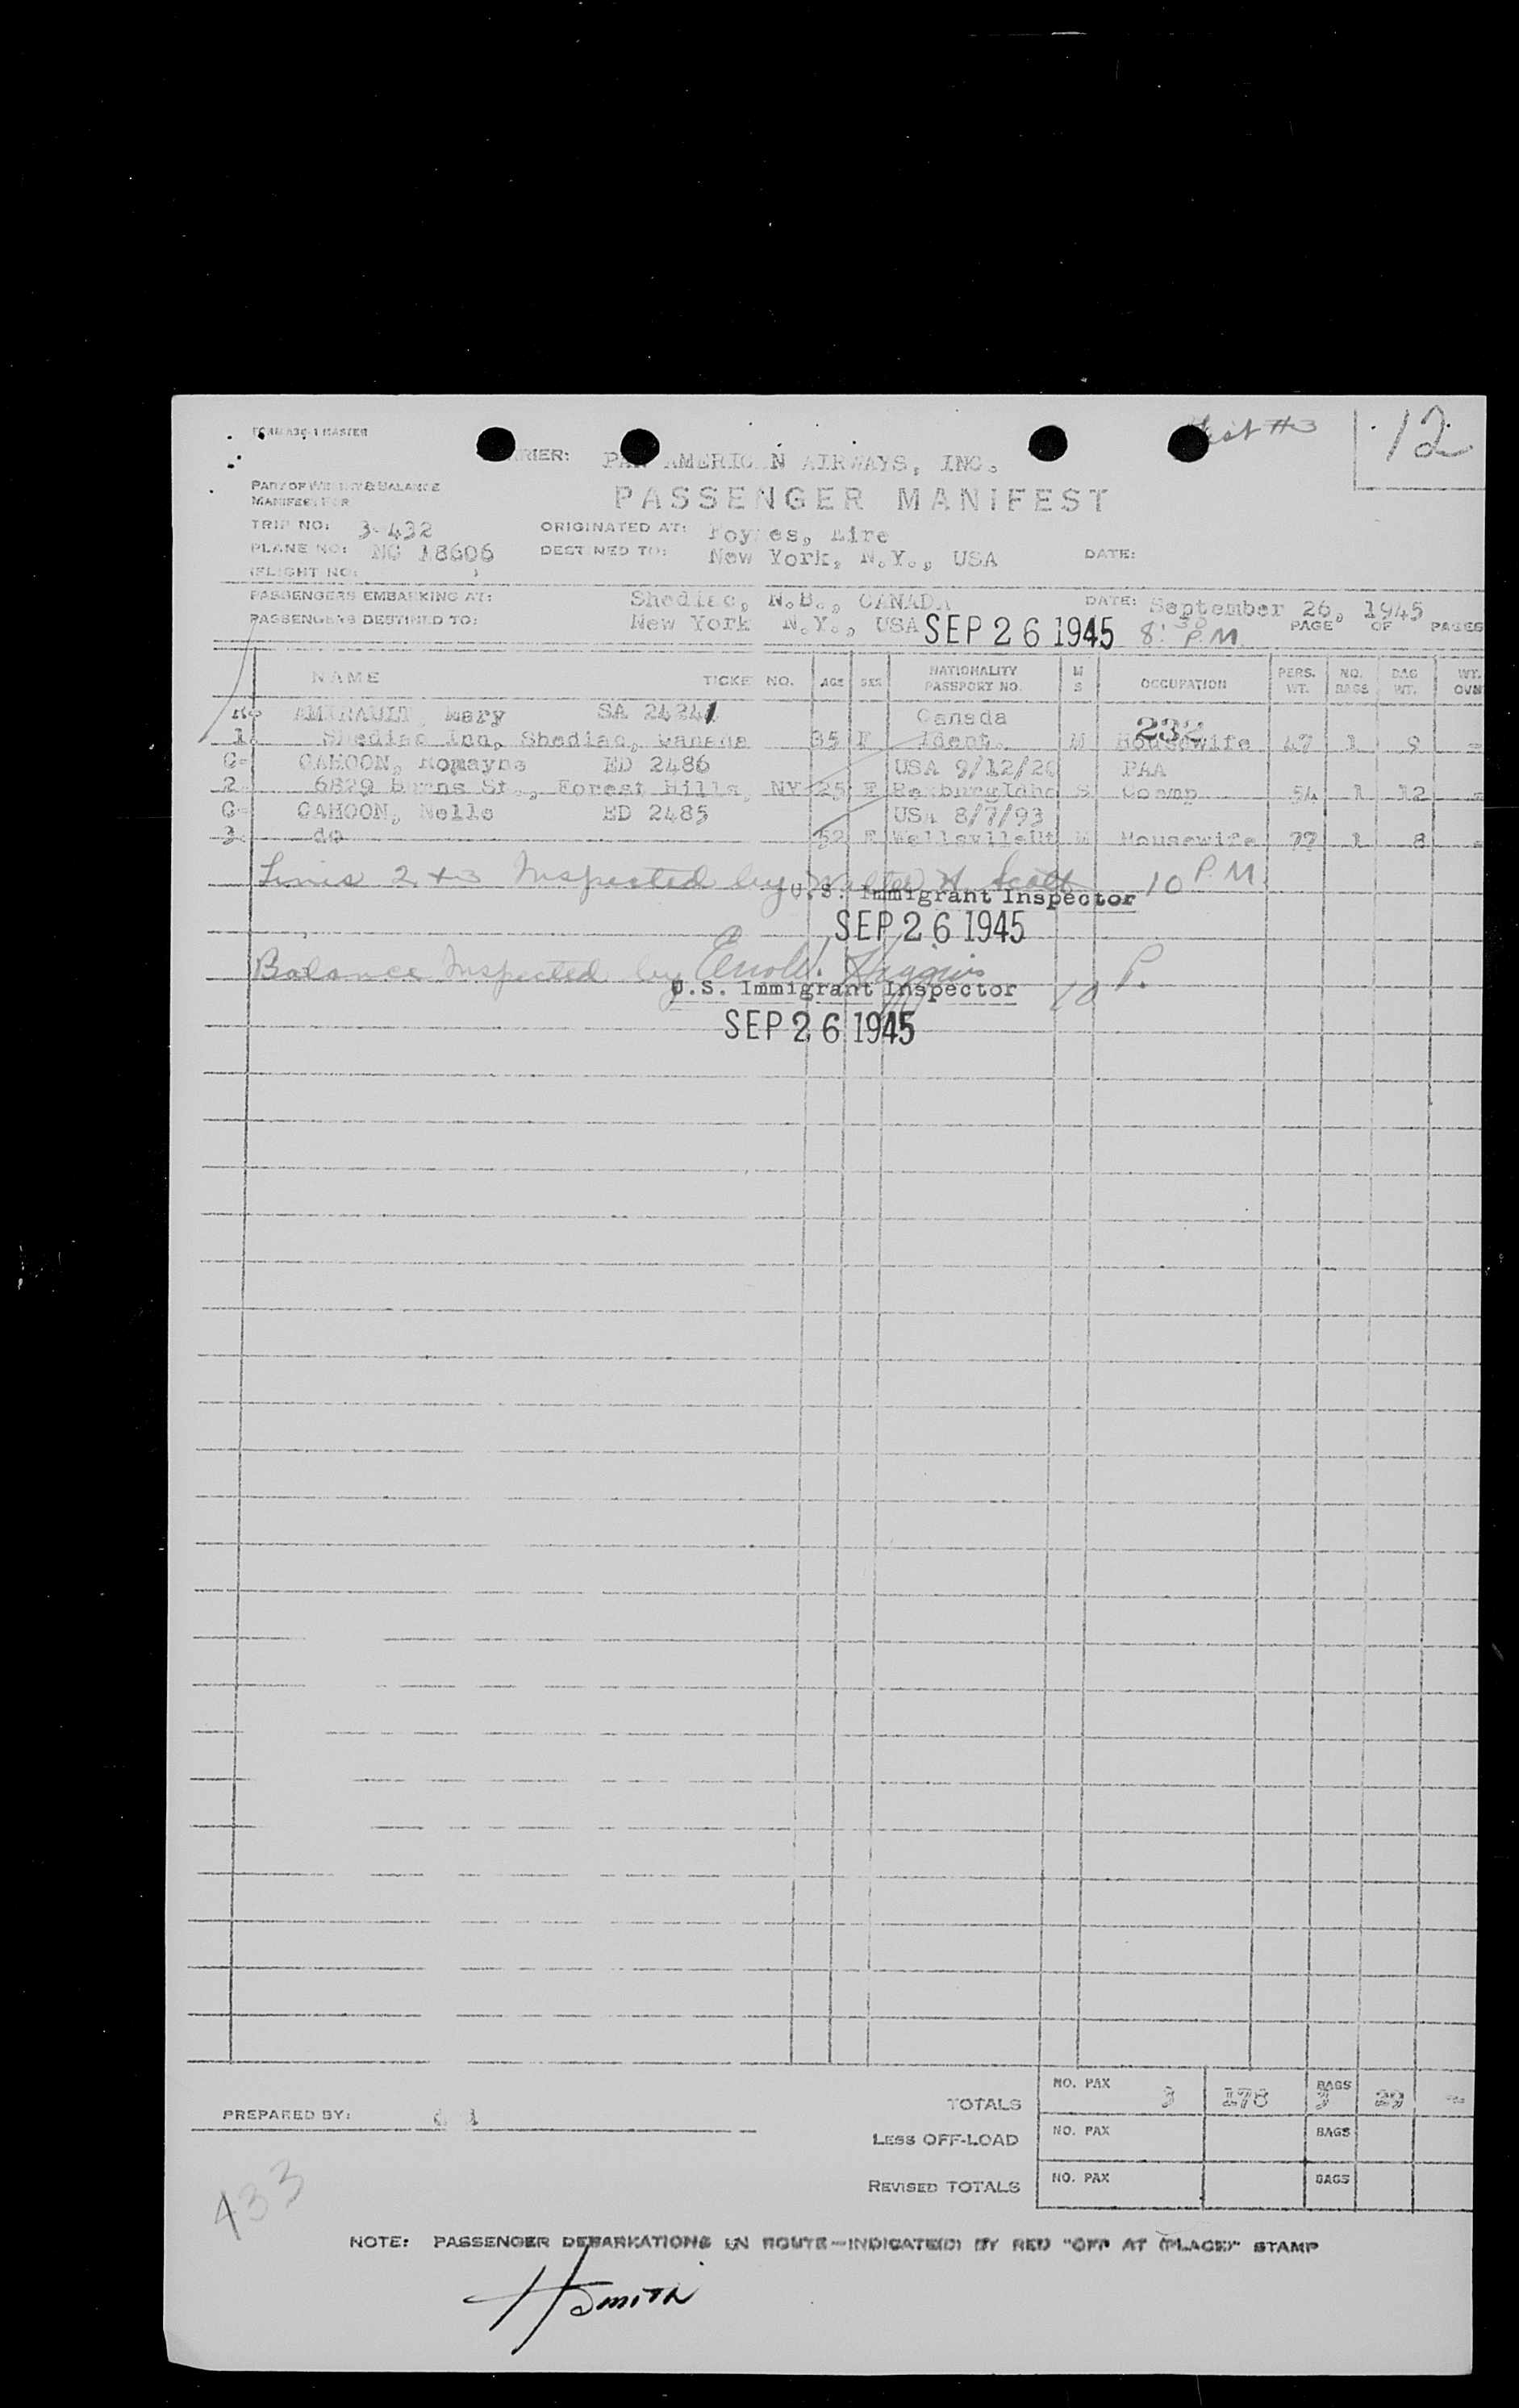 FORM 430-1 MASTER
List #3
12
RIER: PAN AMERICAN AIRWAYS, INC.
PART OF WEIGHT & BALANCE
MANIFEST FOR
PASSENGER MANIFEST
TRIP NO: 3-432 ORIGINATED AT: Foynes, Eire
PLANE NO: NC 18606 DESTINED TO: New York, N.Y., USA DATE:
(FLIGHT NO: )
PASSENGERS EMBARKING AT: Shediac, N.B., CANADA DATE: September 26, 1945
PASSENGERS DESTINED TO: New York N.Y., USA SEP 26 1945 8:30 P.M. PAGE OF PAGES
NAME TICKE NO. AGE SEX NATIONALITY PASSPORT NO. M S OCCUPATION PERS. WT. NO. BAGS BAG WT. WT. OVR
AMIRAULT, Mary SA 24241 Canada 232
1. Shediac Inn, Shediac, Canada 35 F Ident. M Housewife 47 1 9 -
G- CAHOON, Romayne ED 2486 USA 9/12/20 PAA
2. 6829 Burns St., Forest Hills, NY 25 F RexburgIdho S Coemp 54 1 12 -
G- CAHOON, Nelle ED 2485 USA 8/7/93
3. do 52 F WellsvlleUt M Housewife 77 1 8 -
Lines 2 + 3 Inspected by Walter H. Scott 10 PM
U.S. Immigrant Inspector
SEP 26 1945
Balance Inspected by 10 P.
U.S. Immigrant Inspector
SEP 26 1945
TOTALS NO. PAX 3 178 BAGS 3 29 -
PREPARED BY:
LESS OFF-LOAD NO. PAX BAGS
REVISED TOTALS NO. PAX BAGS
433
NOTE: PASSENGER DEBARKATIONS EN ROUTE—INDICATE(D) BY RED "OFF AT (PLACE)" STAMP
H Smith